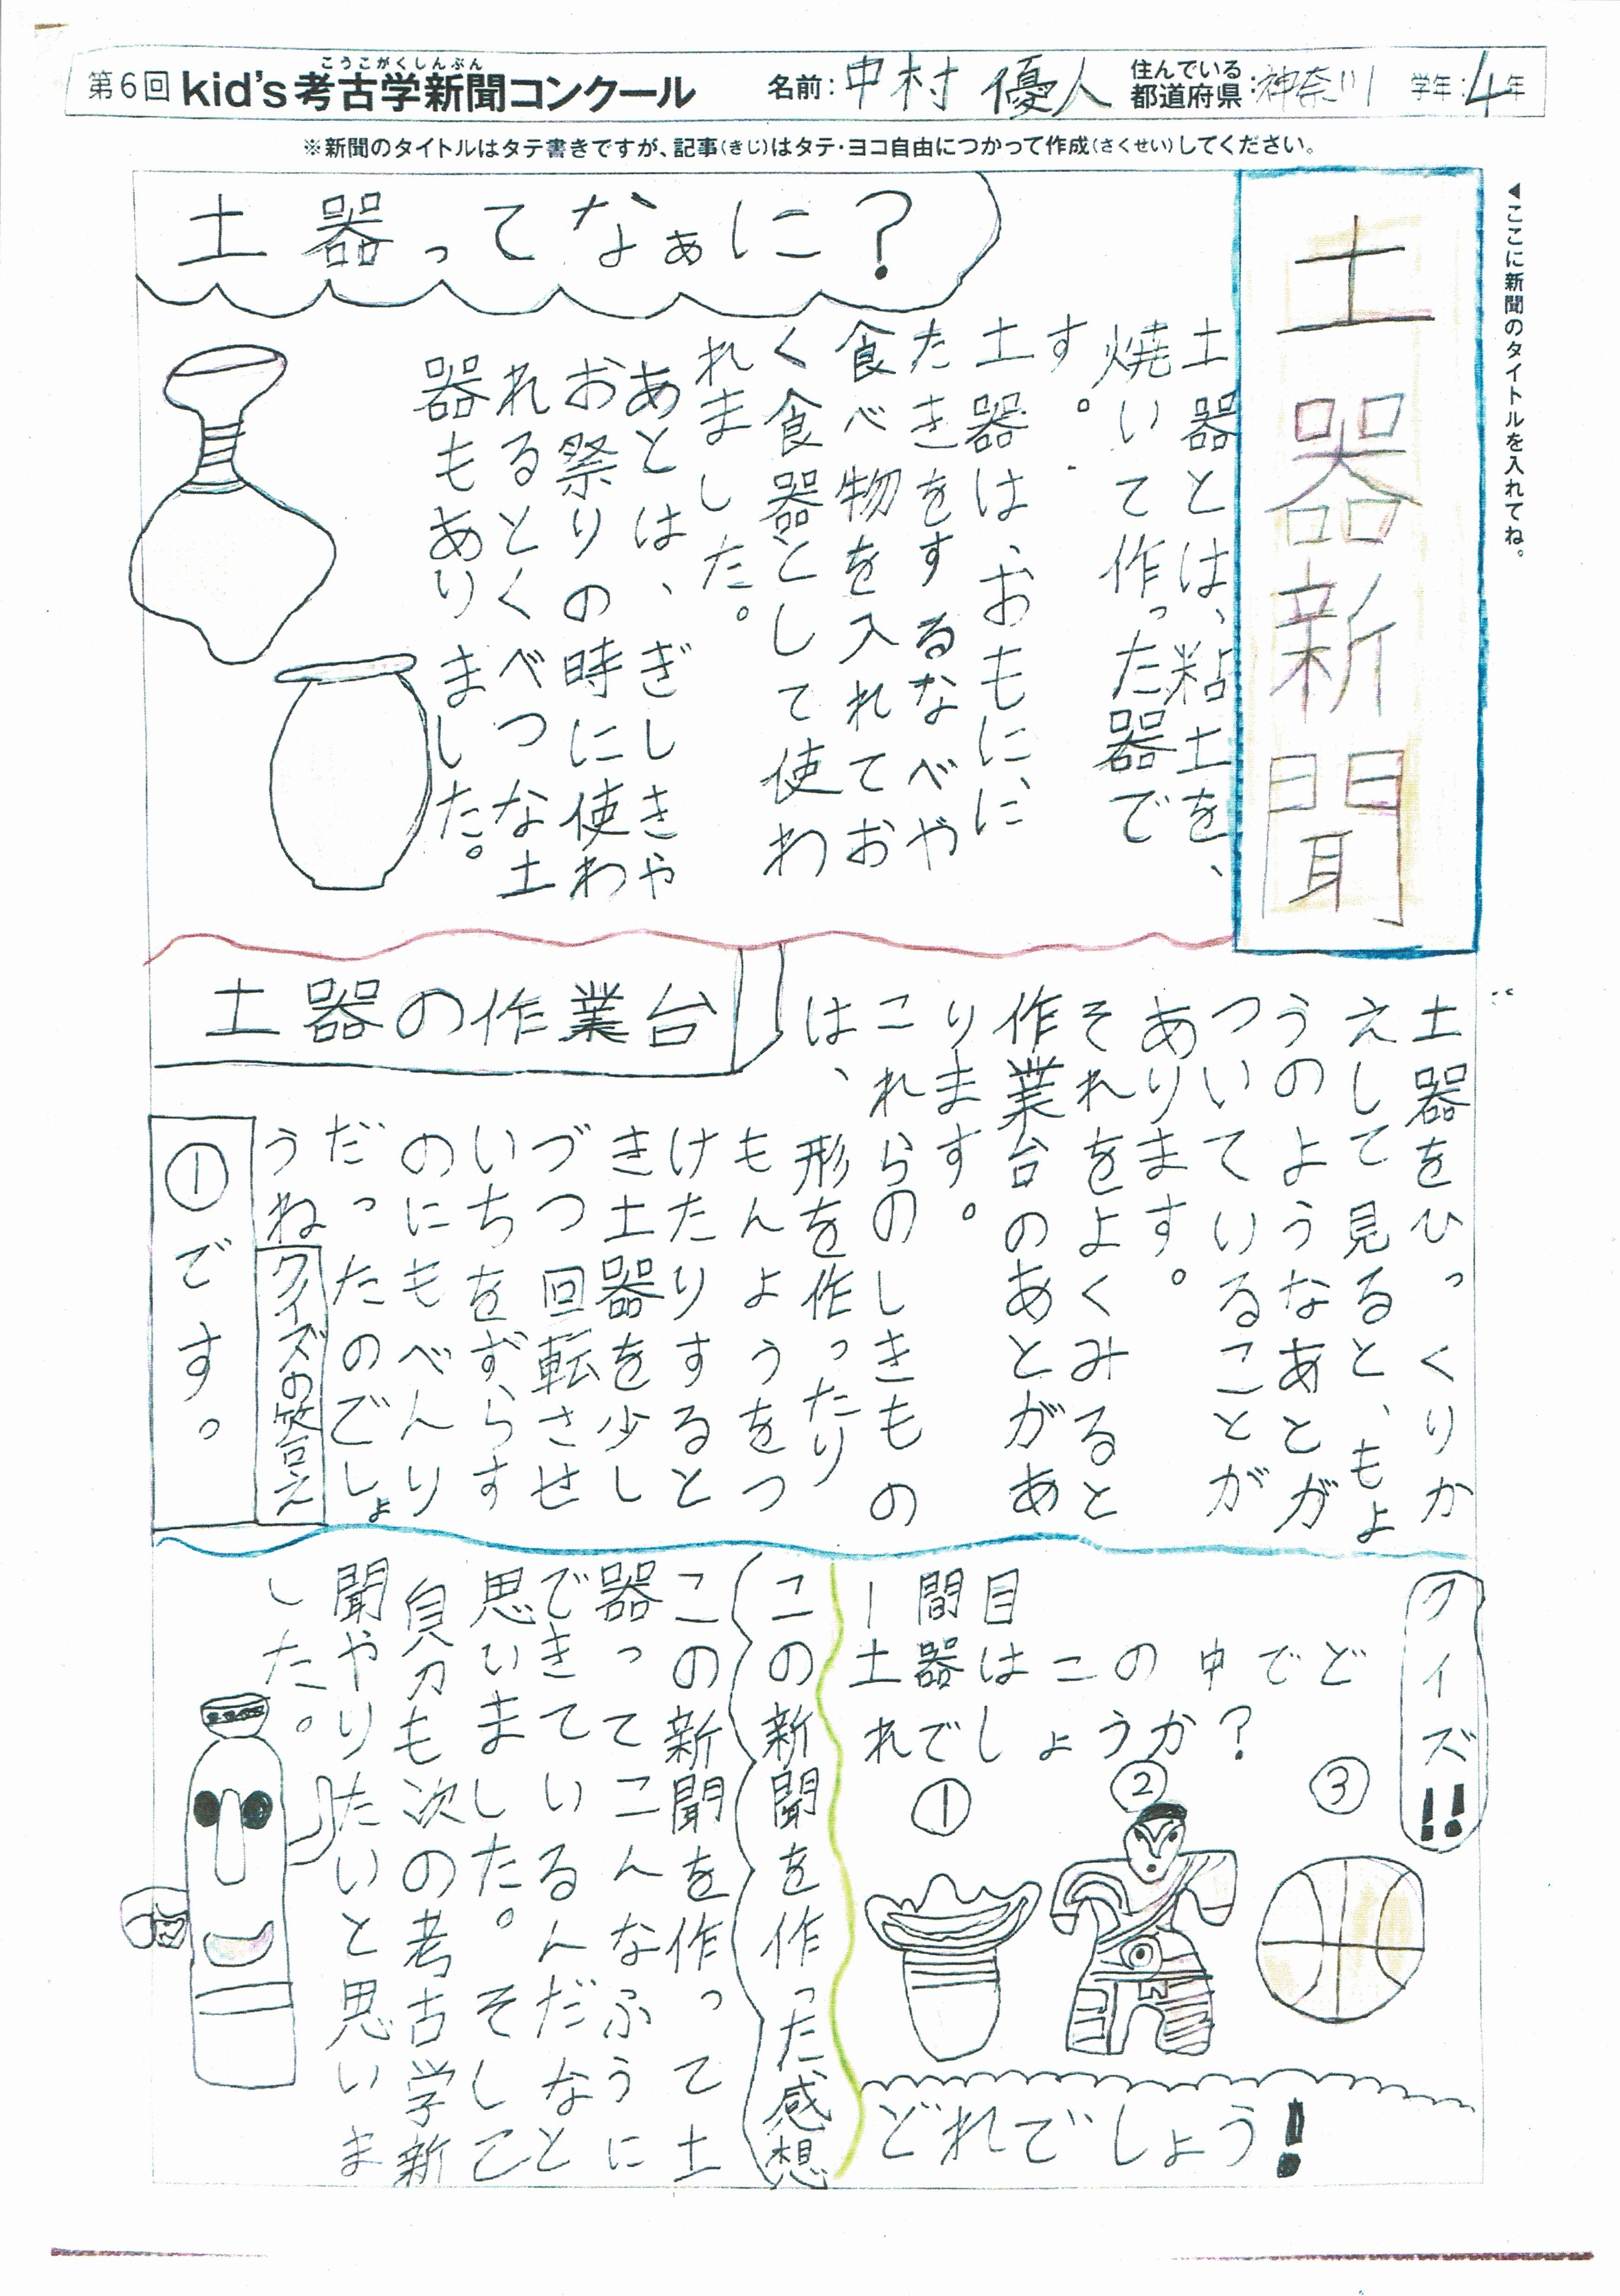 こうこがくしんぶん
第6回 kid's考古学新聞コンクール
名前:中村 優人
住んでいる都道府県:神奈川
学年:4年
※新聞のタイトルはタテ書きですが、記事(きじ)はタテ・ヨコ自由につかって作成(さくせい)してください。
◀ここに新聞のタイトルを入れてね。
土器新聞
土器ってなぁに?
土器とは、粘土を、
焼いて作った器で
す。
土器は、おもに、に
たきをするなべや
食べ物を入れてお
く食器として使わ
れました。
あとは、ぎしきや
お祭りの時に使わ
れるとくべつな土
器もありました。
土器の作業台
土器をひっくりか
えして見ると、もよ
うのようなあとが
ついていることが
あります。
それをよくみると
作業台のあとがあ
ります。
これらのしきもの
は、形を作ったり
もんようをつ
けたりすると
き土器を少し
づつ回転させ
いちをずらす
のにもべんり
だったのでしょ
うね
クイズの答え
①です。
クイズ!!
1問目
土器はこの中でど
れでしょうか?
①
②
③
どれでしょう!
この新聞を作った感想
この新聞を作って土
器ってこんなふうに
できているんだなと
思いました。そして
自分も次の考古学新
聞やりたいと思いま
した。